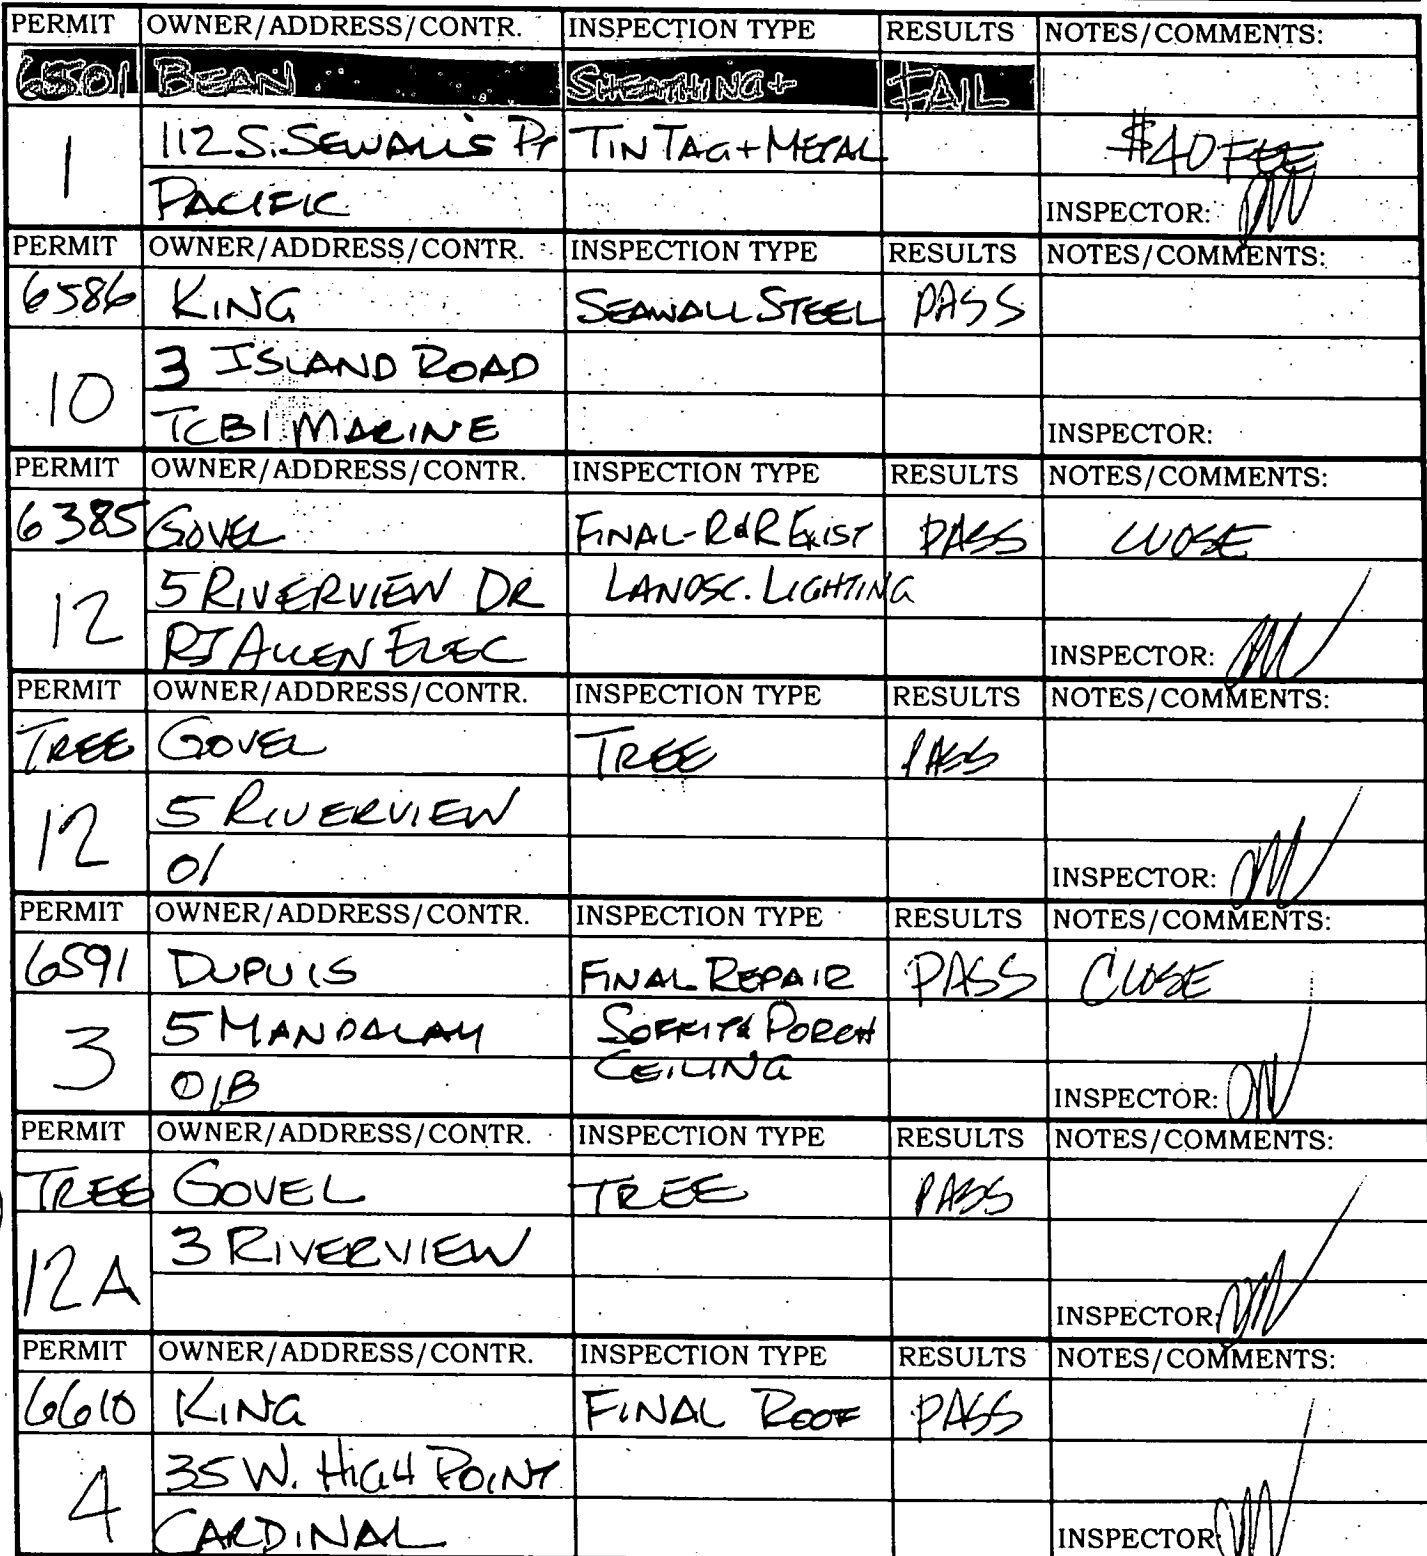 PERMIT OWNER/ADDRESS/CONTR. INSPECTION TYPE RESULTS NOTES/COMMENTS:
6501 BEAN SHEATHING+ FAIL
1 112 S. SEWALL'S PT TIN TAG+METAL $40 FEE
PACIFIC INSPECTOR:
PERMIT OWNER/ADDRESS/CONTR. INSPECTION TYPE RESULTS NOTES/COMMENTS:
6586 KING SEAWALL STEEL PASS
10 3 ISLAND ROAD
TCBI MARINE INSPECTOR:
PERMIT OWNER/ADDRESS/CONTR. INSPECTION TYPE RESULTS NOTES/COMMENTS:
6385 GOVEL FINAL-R&R EXIST PASS CLOSE
12 5 RIVERVIEW DR LANDSC. LIGHTING
RJ ALLEN ELEC INSPECTOR:
PERMIT OWNER/ADDRESS/CONTR. INSPECTION TYPE RESULTS NOTES/COMMENTS:
TREE GOVEL TREE PASS
12 5 RIVERVIEW
O/ INSPECTOR:
PERMIT OWNER/ADDRESS/CONTR. INSPECTION TYPE RESULTS NOTES/COMMENTS:
6591 DUPUIS FINAL REPAIR PASS CLOSE
3 5 MANDALAY SOFFIT & PORCH
O/B CEILING INSPECTOR:
PERMIT OWNER/ADDRESS/CONTR. INSPECTION TYPE RESULTS NOTES/COMMENTS:
TREE GOVEL TREE PASS
12A 3 RIVERVIEW
INSPECTOR:
PERMIT OWNER/ADDRESS/CONTR. INSPECTION TYPE RESULTS NOTES/COMMENTS:
6610 KING FINAL ROOF PASS
4 35 W. HIGH POINT
CARDINAL INSPECTOR